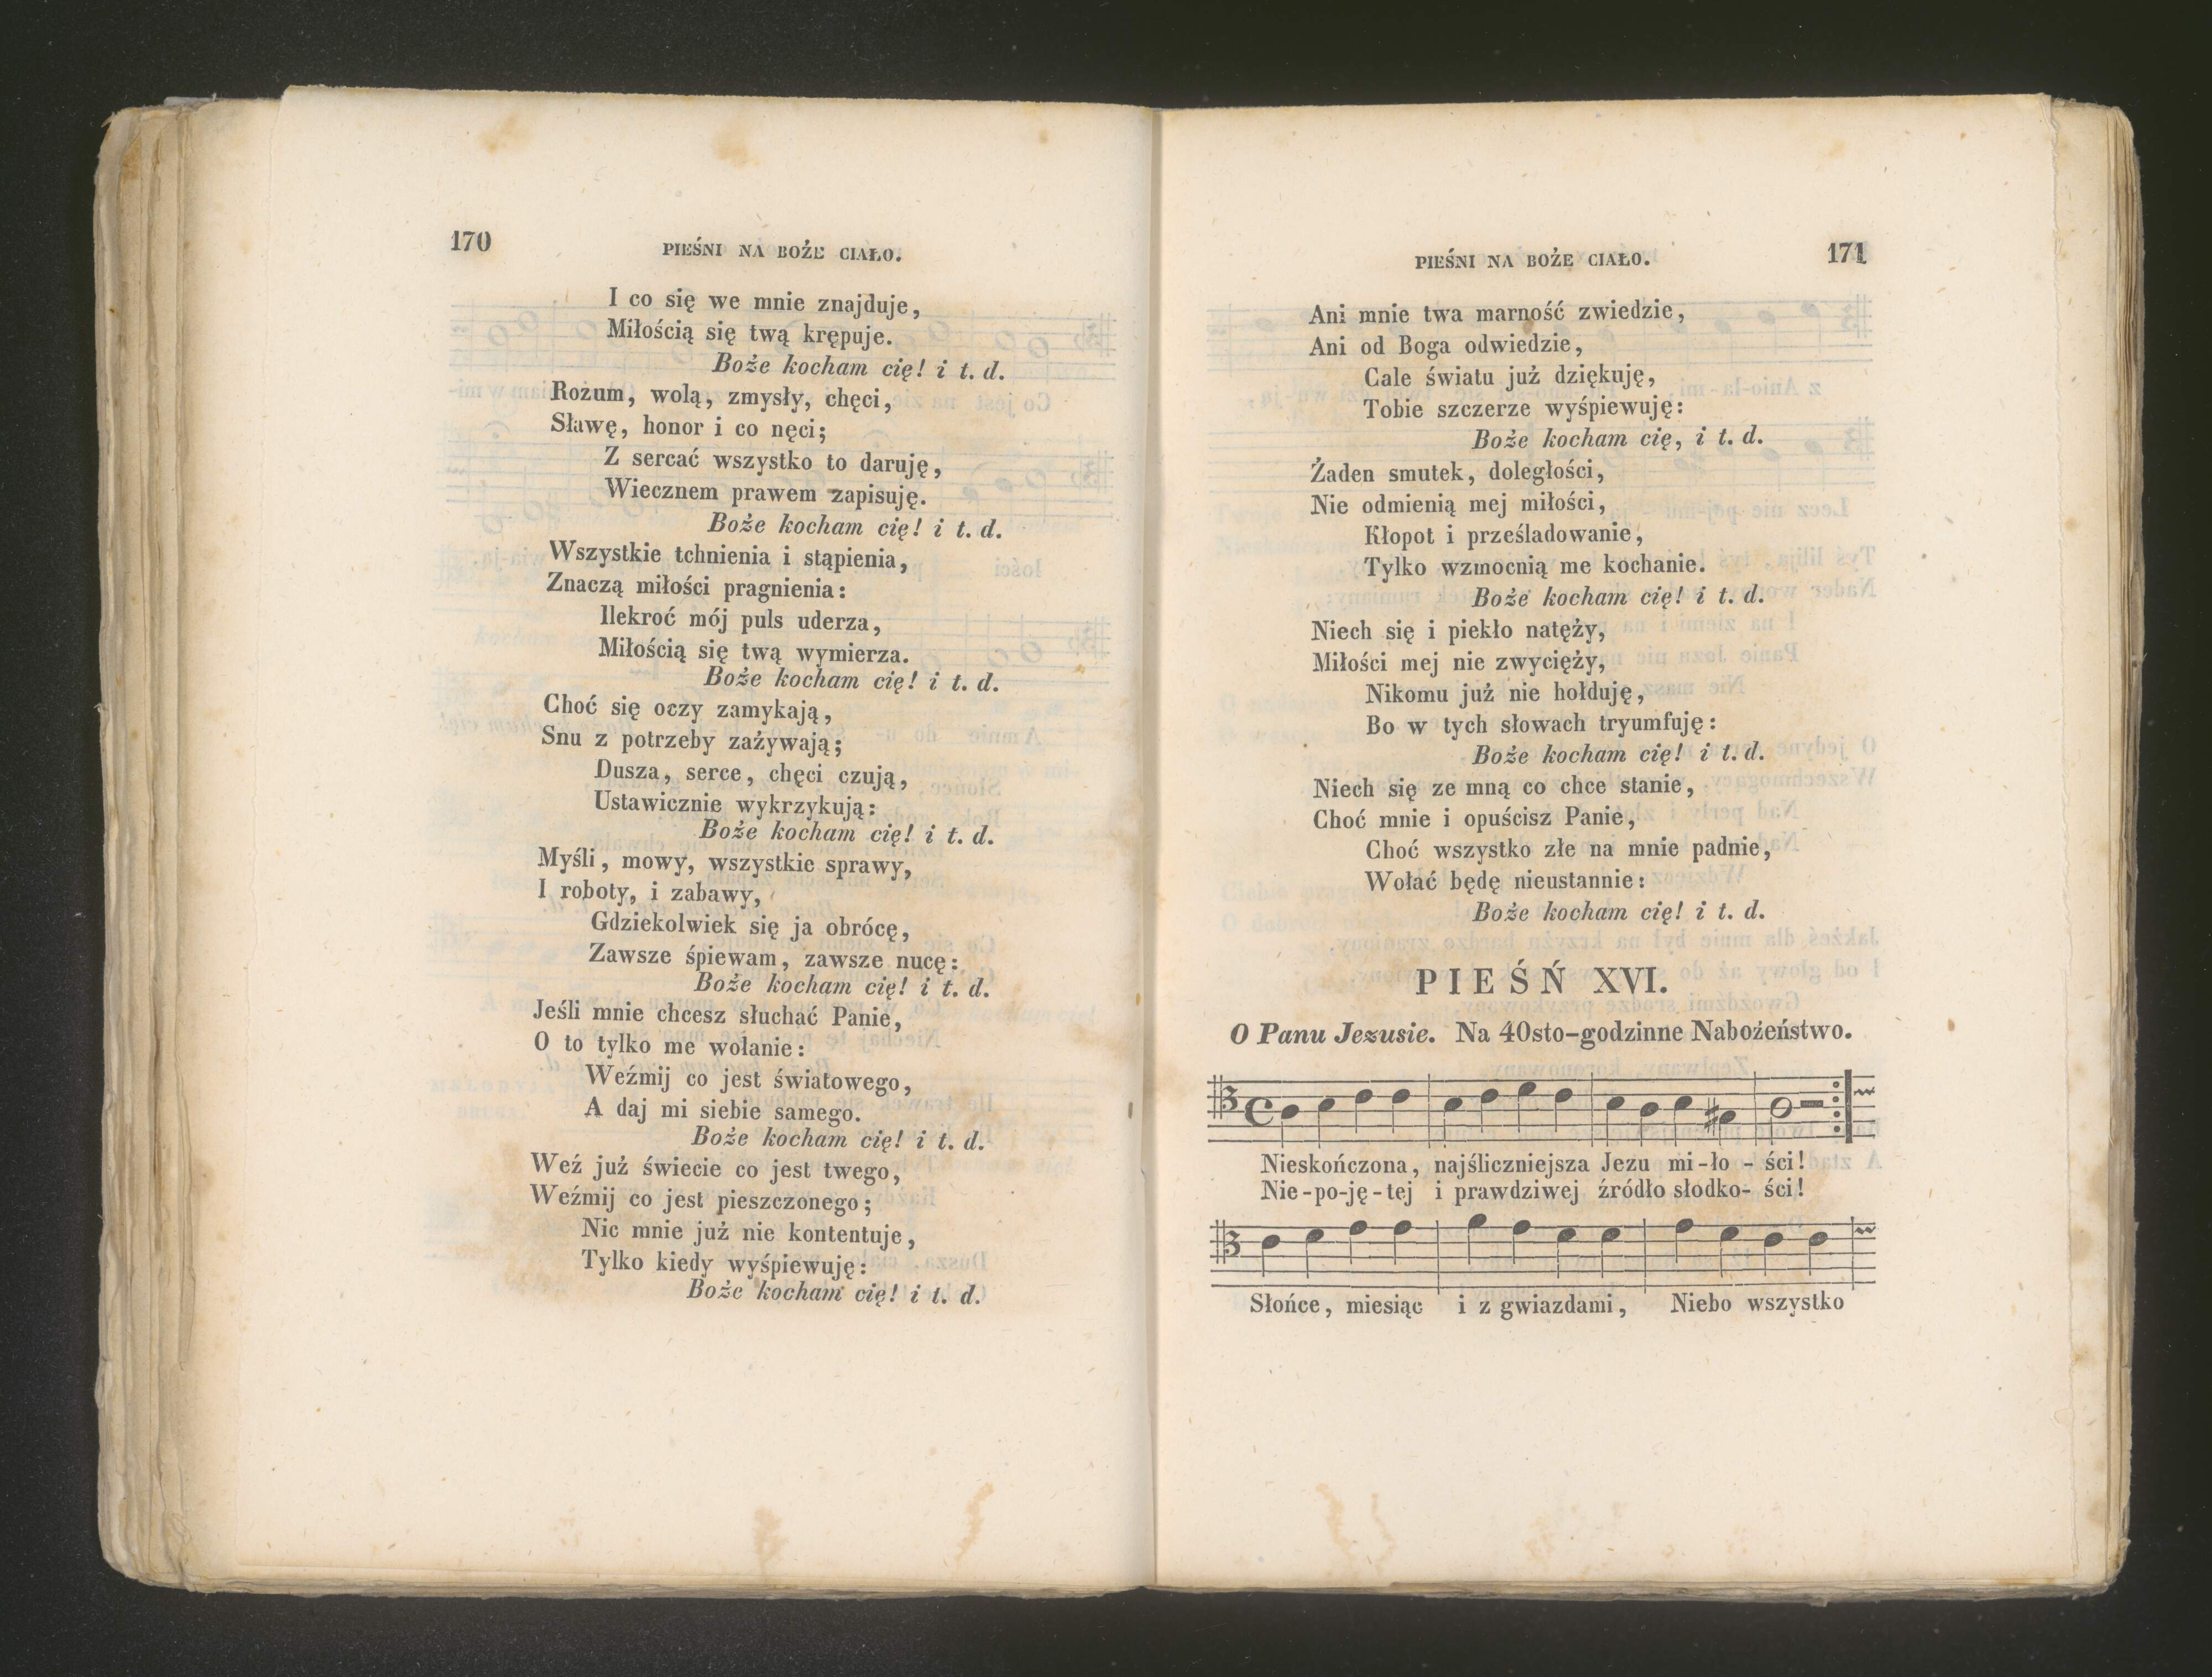 170
PIEŚNI NA BOŻE CIAŁO.
I co się we mnie znajduje,
Miłością się twą krępuje.
Boże kocham cię! i t. d.
Rozum, wolą, zmysły, chęci,
Sławę, honor i co nęci;
Z sercać wszystko to daruję,
Wiecznem prawem zapisuję.
Boże kocham cię! i t. d.
Wszystkie tchnienia i stąpienia,
Znaczą miłości pragnienia:
Ilekroć mój puls uderza,
Miłością się twą wymierza.
Boże kocham cię! i t. d.
Choć się oczy zamykają,
Snu z potrzeby zażywają;
Dusza, serce, chęci czują,
Ustawicznie wykrzykują:
Boże kocham cię! i t. d.
Myśli, mowy, wszystkie sprawy,
I roboty, i zabawy,
Gdziekolwiek się ja obrócę,
Zawsze śpiewam, zawsze nucę:
Boże kocham cię! i t. d.
Jeśli mnie chcesz słuchać Panie,
O to tylko me wołanie:
Weźmij co jest światowego,
A daj mi siebie samego.
Boże kocham cię! i t. d.
Weź już świecie co jest twego,
Weźmij co jest pieszczonego;
Nic mnie już nie kontentuje,
Tylko kiedy wyśpiewuję:
Boże kocham cię! i t. d.
PIEŚNI NA BOŻE CIAŁO.
171
Ani mnie twa marność zwiedzie,
Ani od Boga odwiedzie,
Cale światu już dziękuję,
Tobie szczerze wyśpiewuję:
Boże kocham cię, i t. d.
Żaden smutek, doległości,
Nie odmienią mej miłości,
Kłopot i prześladowanie,
Tylko wzmocnią me kochanie.
Boże kocham cię! i t. d.
Niech się i piekło natęży,
Miłości mej nie zwycięży,
Nikomu już nie hołduję,
Bo w tych słowach tryumfuję:
Boże kocham cię! i t. d.
Niech się ze mną co chce stanie,
Choć mnie i opuścisz Panie,
Choć wszystko złe na mnie padnie,
Wołać będę nieustannie:
Boże kocham cię! i t. d.
PIEŚŃ XVI.
O Panu Jezusie. Na 40sto-godzinne Nabożeństwo.
Nieskończona, najśliczniejsza Jezu mi-ło - ści!
Nie-po-ję-tej i prawdziwej źródło słodko- ści!
Słońce, miesiąc i z gwiazdami, Niebo wszystko